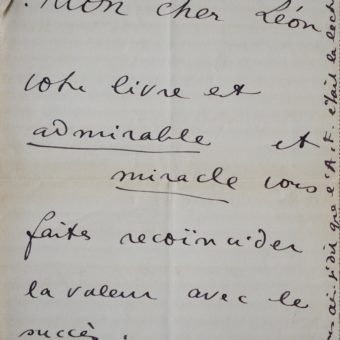 Mon cher Léon
votre livre est
admirable et
miracle vous
faites recoïncider
la valeur avec le
succès.
ai-j'dit que l'A.F. était la lect